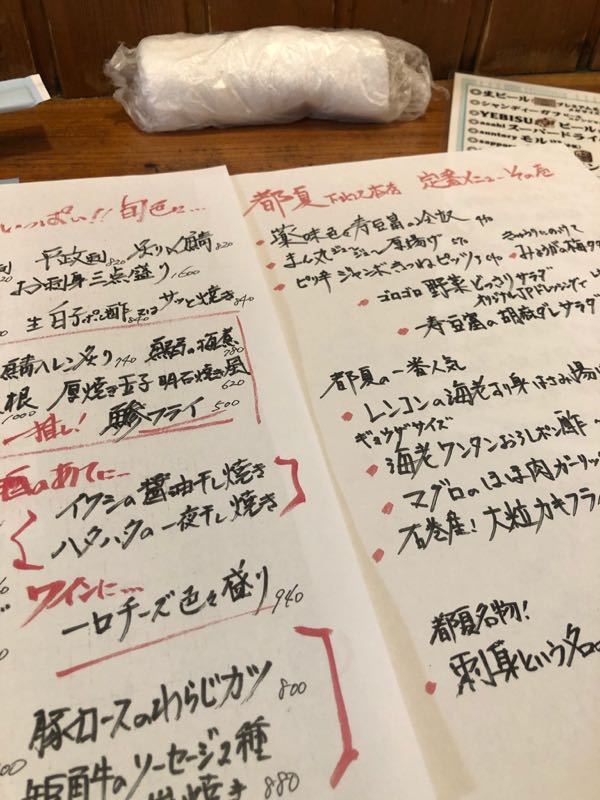 いっぱい!! 旬色に…
平政刺 820 炙り〆鯖 820
お刺身三点盛り 1600
生白子ポン酢 840 又は サッと焼き 840
鯖ヘレン炙り 940 鰯の梅煮 780
根 1000 厚焼き玉子 明石焼き風 620
一推し! 鯵フライ 500
酒のあてに…
イワシの醤油干し焼き
ハタハタの一夜干し焼き
ワインに…
一口チーズ色々盛り 940
豚ロースのわらじカツ 800
短角牛のソーセージ2種
880
都夏 定番メニュー その壱
薬味色々寿豆富の冷奴
まん丸ジュージュー厚揚げ
ピリキ ジャンボきつねピッツァ
きゅうりにのけて
みょうがの梅タ
ゴロゴロ野菜どっさりサラダ
オリジナルJPドレッシングで
寿豆富の胡麻ダレサラダ
都夏の一番人気
レンコンの海老すり身はさみ揚げ
ギョウザサイズ
海老ワンタンおろしポン酢
マグロのほほ肉ガーリッ
石巻産! 大粒カキフライ
都夏名物!
刺身というタ
生ビール
シャンディーガフ
YEBISU ビール
asahi スーパードライ
suntory モルツ
sappo